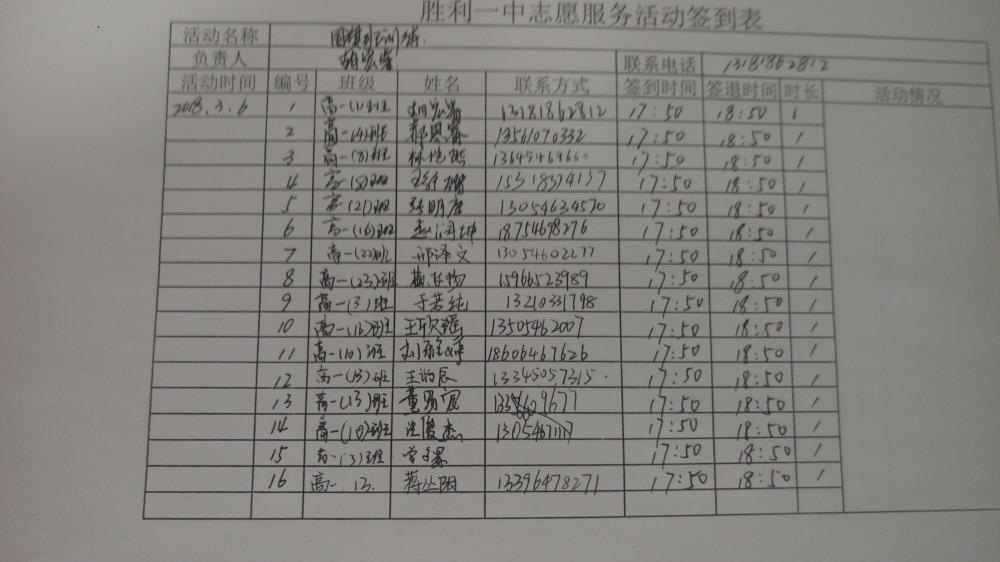 胜利一中志愿服务活动签到表
活动名称 围棋社训练.
负责人 联系电话 13181862812
活动时间 编号 班级 姓名 联系方式 签到时间 签退时间 时长 活动情况
2018.3.6 1 高一(1)班 13181862812 17:50 18:50 1
2 高一(4)班 13561070332 17:50 18:50 1
3 高一(8)班 13645469660 17:50 18:50 1
4 高一(8)班 15318374137 17:50 18:50 1
5 高一(21)班 张明康 13054634570 17:50 18:50 1
6 高一(16)班 孟润坤 18754698276 17:50 18:50 1
7 高一(22)班 邢泽文 13054602277 17:50 18:50 1
8 高一(23)班 15966523989 17:50 18:50 1
9 高一(3)班 于若纯 13210331798 17:50 18:50 1
10 高一(16)班 王欣瑶 13505462007 17:50 18:50 1
11 高一(10)班 18606467626 17:50 18:50 1
12 高一(13)班 王韵辰 13345057315. 17:50 18:50 1
13 高一(13)班 董 宸 17:50 18:50 1
14 高一(10)班 俊杰 17:50 18:50 1
15 高一(3)班 17:50 18:50 1
16 高一.13. 蒋丛阳 13396478271 17:50 18:50 1